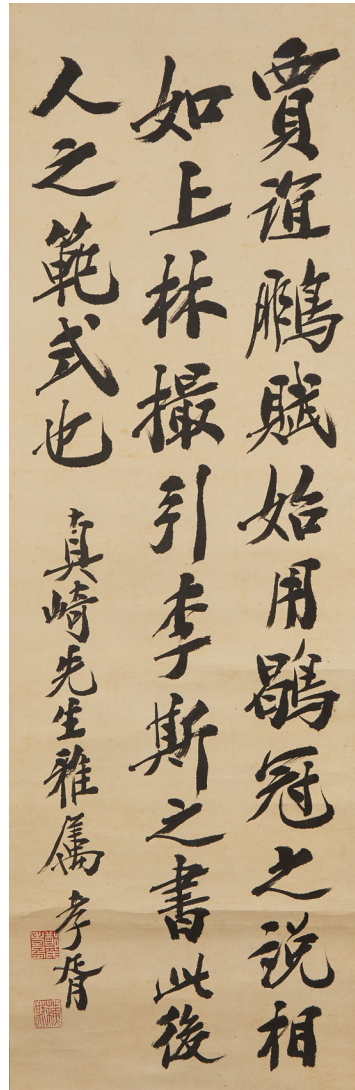 賈誼鵩賦始用鶡冠之説相
如上林撮引李斯之書此後
人之範式也
真崎先生雅属 孝胥